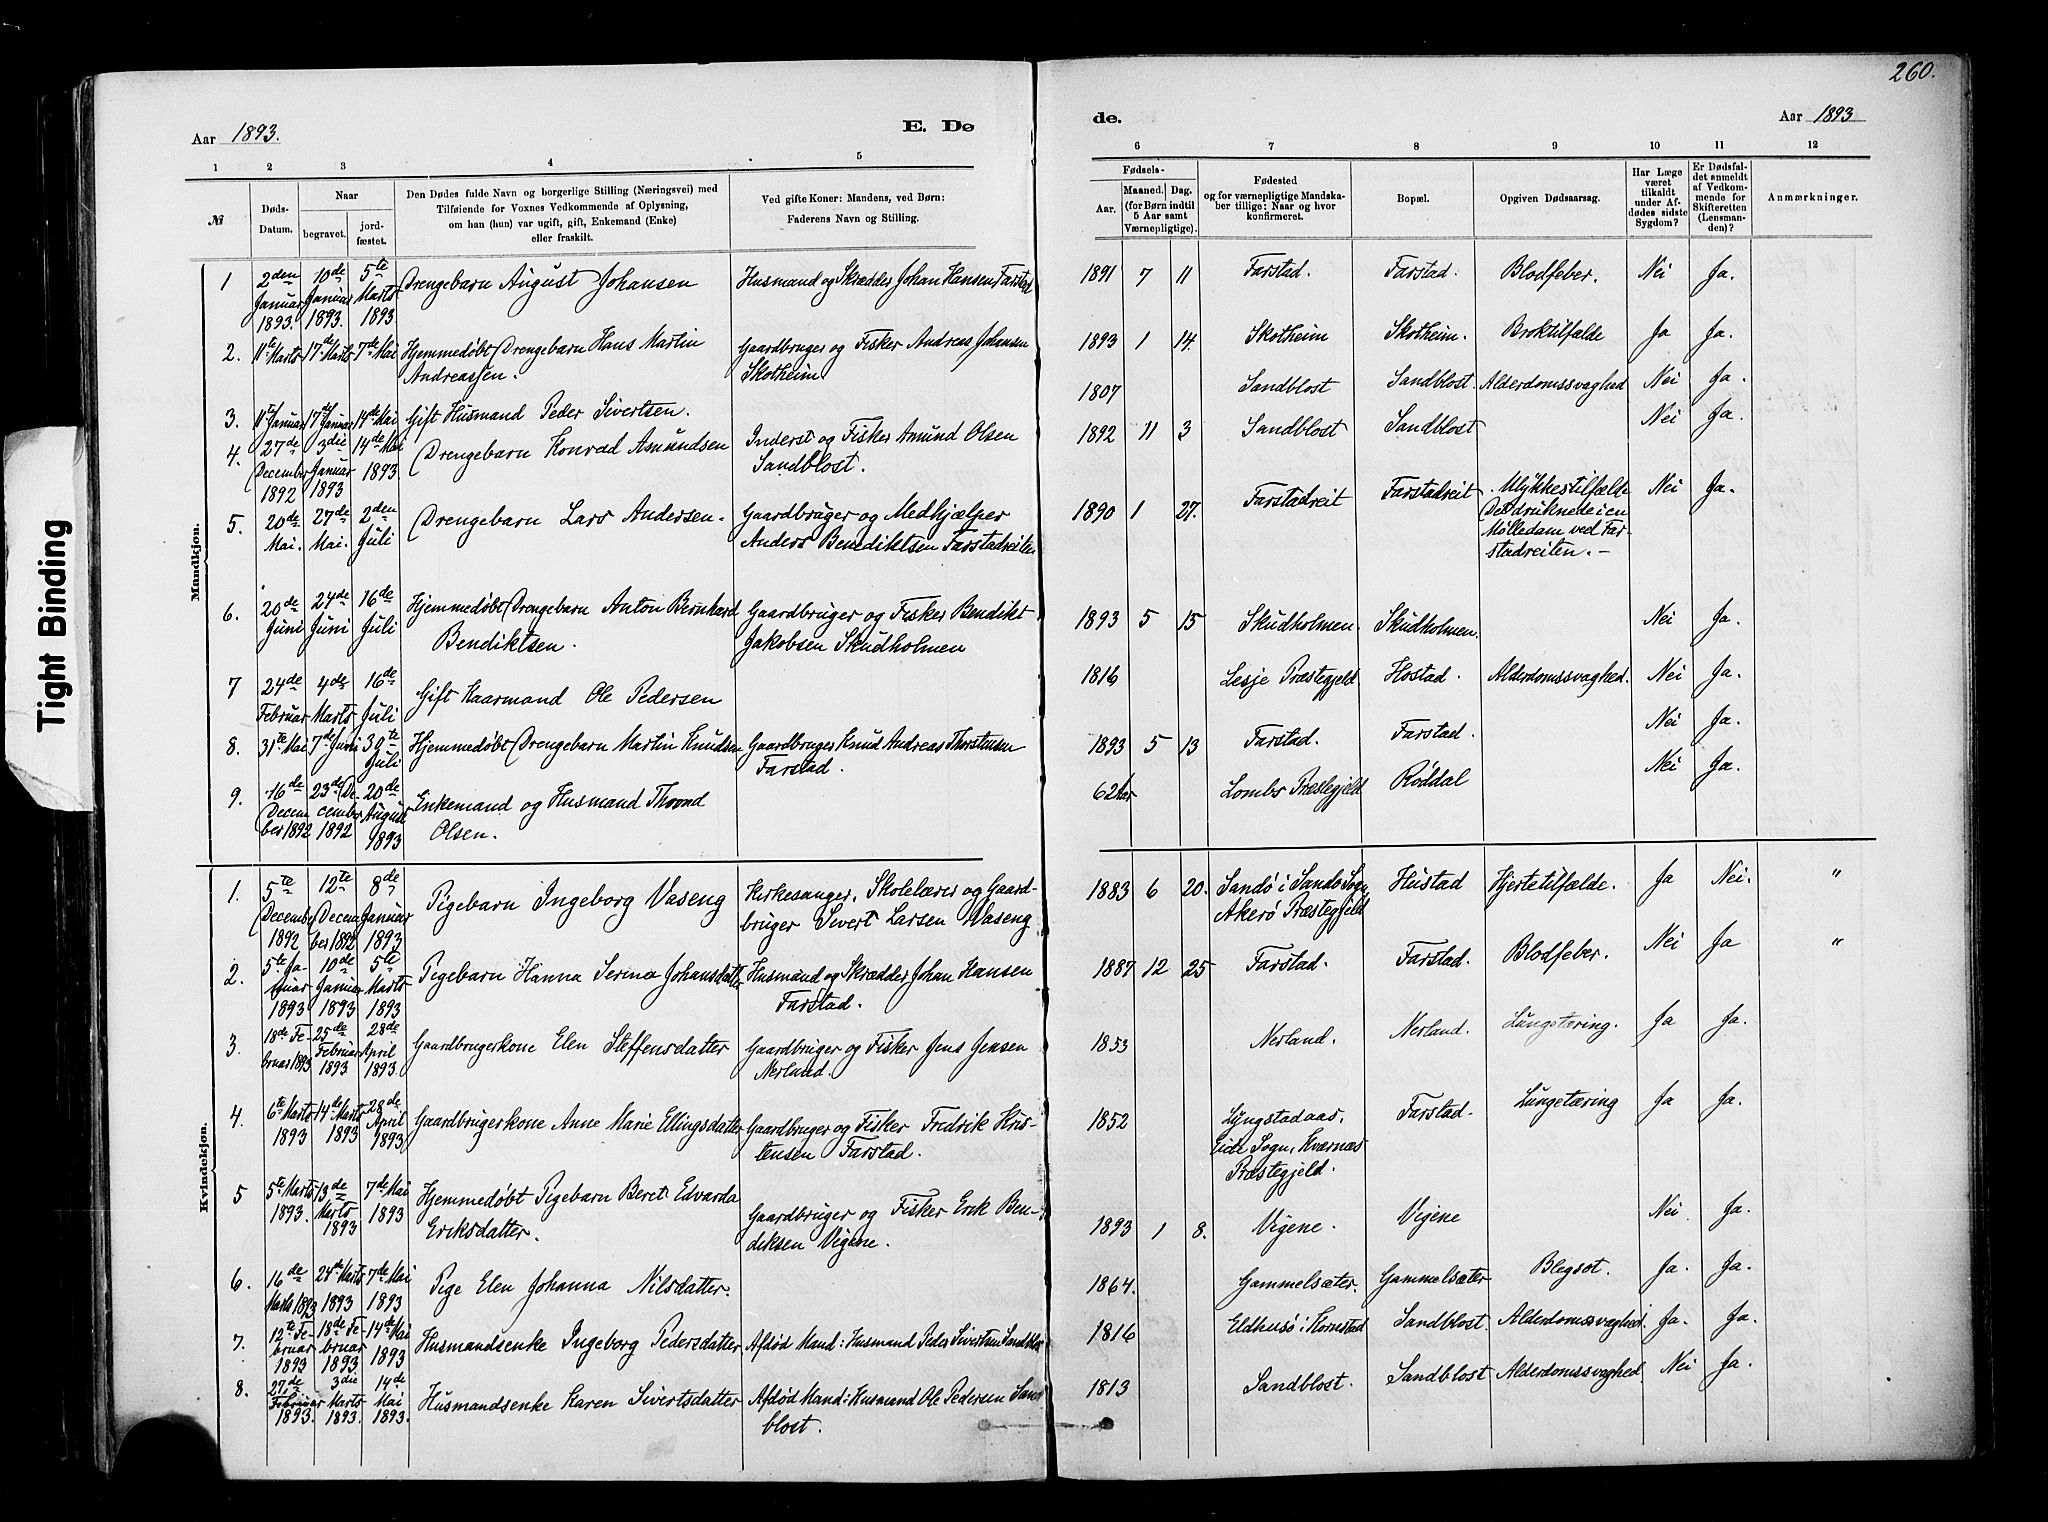 260.
Aar 1893.
E. Dø
de.
Aar 1893
1 2 3 4 5 6 7 8 9 10 11 12
№
Døds-
Datum.
Naar
begravet.
jord-
fæstet.
Den Dødes fulde Navn og borgerlige Stilling (Næringsvei) med
Tilføiende for Voxnes Vedkommende af Oplysning,
om han (hun) var ugift, gift, Enkemand (Enke)
eller fraskilt.
Ved gifte Koner: Mandens, ved Børn:
Faderens Navn og Stilling.
Fødsels-
Aar.
Maaned. Dag.
(for Børn indtil
5 Aar samt
Værnepligtige).
Fødested
og for værnepligtige Mandska-
ber tillige: Naar og hvor
konfirmeret.
Bopæl.
Opgiven Dødsaarsag.
Har Læge
været
tilkaldt
under Af-
dødes sidste
Sygdom?
Er Dødsfal-
det anmeldt
af Vedkom-
mende for
Skifteretten
(Lensman-
den)?
Anmærkninger.
Mandkjøn.
1 2den Januar 1893. 10de Januar 1893. 5te Marts 1893 Drengebarn August Johansen Husmand og Skrædder Johan Hansen Farstad 1891 7 11 Farstad. Farstad. Blodfeber. Nei Ja.
2. 11te Marts 17de Marts 7de Mai Hjemmedøbt Drengebarn Hans Martin
Andreassen. Gaardbruger og Fisker Andreas Johansen
Skotheim 1893 1 14. Skotheim Skotheim. Broktilfælde Ja Ja.
3. 11te Januar 17de Januar 14de Mai Gift Husmand Peder Sivertsen. 1807 Sandblost Sandblost. Alderdomssvaghed Nei Ja.
4. 27de December 1892 3die Januar 1893 14de Mai 1893. Drengebarn Konrad Asmundsen Inderst og Fisker Amund Olsen
Sandblost. 1892 11 3 Sandblost Sandblost Nei Ja.
5. 20de Mai. 27de Mai. 2den Juli Drengebarn Lars Andersen. Gaardbruger og Medhjælper
Anders Benediktsen Farstadreiten 1890 1 27. Farstadreit Farstadreit Ulykkestilfælde
Det druknede i en
Mølledam ved Far-
stadreiten. - Nei Ja.
6. 20de Juni 24de Juni 16de Juli Hjemmedøbt Drengebarn Anton Bernhard
Bendiktsen. Gaardbruger og Fisker Bendikt
Jakobsen Skudholmen 1893 5 15 Skudholmen. Skudholmen. Nei Ja.
7 24de Februar 4de Marts 16de Juli Gift Kaarmand Ole Pedersen 1816 Lesje Præstegjeld Hostad. Alderdomssvaghed. Nei Ja.
8. 31te Mai 7de Juni 30te Juli Hjemmedøbt Drengebarn Martin Knudsen Gaardbruger Knud Andreas Thorstensen
Farstad. 1893 5 13 Farstad. Farstad. Nei Ja.
9. 16de December 1892 23de December 1892 20de August 1893 Enkemand og Husmand Thrond
Olsen. 62 Aar Lombs Præstegjeld Røddal Nei Ja.
Kvindekjøn.
1. 5te December 1892 12te December 1892 8de Januar 1893 Pigebarn Ingeborg Vaseng Kirkesanger, Skolelærer og Gaard-
bruger Sivert Larsen Waseng 1883 6 20. Sandø i Sandø Sogn,
Akerø Præstegjeld Hustad Hjertetilfælde. Ja Nei. "
2. 5te Januar 1893 10de Januar 1893 5te Marts 1893 Pigebarn Hanna Serina Johansdatter Husmand og Skrædder Johan Hansen
Farstad. 1887 12 25 Farstad. Farstad. Blodfeber. Nei Ja "
3. 18de Februar 1893 25de Februar 1893 28de April 1893. Gaardbrugerkone Elen Steffensdatter Gaardbruger og Fisker Jens Jensen
Nerland. 1853 Nerland. Nerland. Lungetæring. Ja Ja.
4. 6te Marts 1893 14de Marts 1893 28de April 1893 Gaardbrugerkone Anne Marie Ellingsdatter Gaardbruger og Fisker Fredrik Kris-
tensen Farstad. 1852 Lyngstadaas,
Eide Sogn, Kværnæs
Præstegjeld. Farstad. Lungetæring Ja Ja.
5 5te Marts 1893. 13de Marts 1893 7de Mai 1893 Hjemmedøbt Pigebarn Beret Edvarda
Eriksdatter. Gaardbruger og Fisker Erik Ben-
diksen Vigene. 1893 1 8. Vigene. Vigene Nei Ja.
6. 16de Marts 1893 24de Marts 1893 7de Mai 1893 Pige Elen Johanna Nilsdatter. 1864. Gammelsæter. Gammelsæter Blegsot. Ja. Ja.
7. 12te Februar 1893 18de Februar 1893 14de Mai 1893 Husmandsenke Ingeborg Pedersdatter Afdød Mand: Husmand Peder Sivertsen Sandblost 1816 Eldhusø i Kornstad Sandblost. Alderdomssvaghed Ja. Ja.
8. 27de Februar 1893. 3die Marts 1893. 14de Mai 1893. Husmandsenke Karen Sivertsdatter Afdød Mand: Husmand Ole Pedersen Sand-
blost. 1813 Sandblost. Sandblost Alderdomssvaghed Nei Ja.
Tight Binding